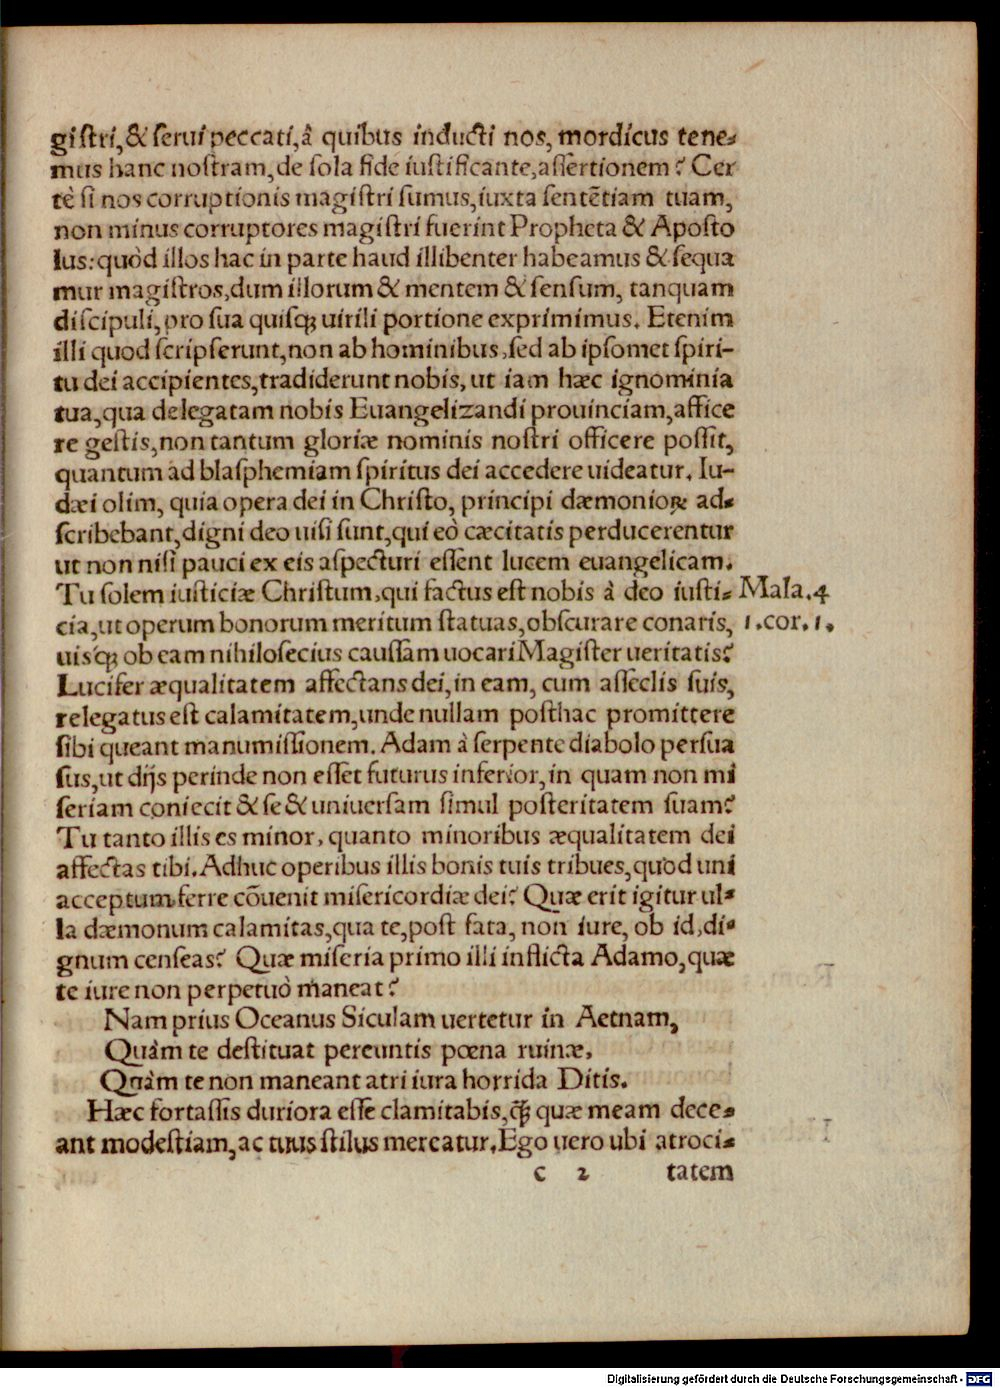 gistri, & serui peccati, à quibus inducti nos, mordicus tene-
mus hanc nostram, de sola fide iustificante, assertionem? Cer
tè si nos corruptionis magistri sumus, iuxta sentētiam tuam,
non minus corruptores magistri fuerint Propheta & Aposto
lus: quòd illos hac in parte haud illibenter habeamus & sequa
mur magistros, dum illorum & mentem & sensum, tanquam
discipuli, pro sua quisq; uirili portione exprimimus. Etenim
illi quod scripserunt, non ab hominibus, sed ab ipsomet spiri-
tu dei accipientes, tradiderunt nobis, ut iam hæc ignominia
tua, qua delegatam nobis Euangelizandi prouinciam, affice
re gestis, non tantum gloriæ nominis nostri officere possit,
quantum ad blasphemiam spiritus dei accedere uideatur. Iu-
dæi olim, quia opera dei in Christo, principi dæmonioꝝ ad-
scribebant, digni deo uisi sunt, qui eò cæcitatis perducerentur
ut non nisi pauci ex eis aspecturi essent lucem euangelicam.
Tu solem iusticiæ Christum, qui factus est nobis à deo iusti- Mala. 4
cia, ut operum bonorum meritum statuas, obscurare conaris, 1. cor. 1.
uisq; ob eam nihilosecius caussam uocari Magister ueritatis?
Lucifer æqualitatem affectans dei, in eam, cum asseclis suis,
relegatus est calamitatem, unde nullam posthac promittere
sibi queant manumissionem. Adam à serpente diabolo persua
sus, ut dijs perinde non esset futurus inferior, in quam non mi
seriam coniecit & se & uniuersam simul posteritatem suam?
Tu tanto illis es minor, quanto minoribus æqualitatem dei
affectas tibi. Adhuc operibus illis bonis tuis tribues, quod uni
acceptum ferre cōuenit misericordiæ dei? Quæ erit igitur ul-
la dæmonum calamitas, qua te, post fata, non iure, ob id, di-
gnum censeas? Quæ miseria primo illi inflicta Adamo, quæ
te iure non perpetuò maneat?
Nam prius Oceanus Siculam uertetur in Aetnam,
Quàm te destituat pereuntis pœna ruinæ,
Quàm te non maneant atri iura horrida Ditis.
Hæc fortassis duriora esse clamitabis, q̃ꝫ quæ meam dece-
ant modestiam, ac tuus stilus mereatur. Ego uero ubi atroci-
c 2 tatem
Digitalisierung gefördert durch die Deutsche Forschungsgemeinschaft - DFG